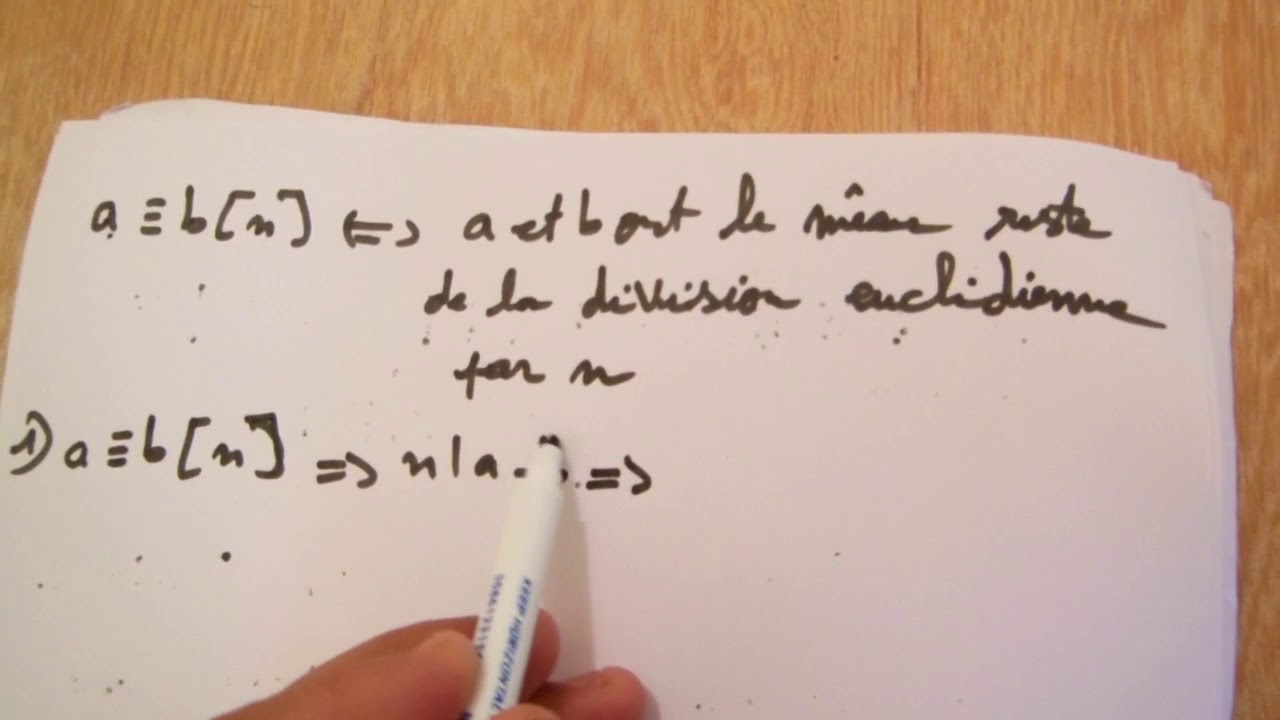 a ≡ b [n] <=> a et b ont le même reste
de la division euclidienne
par n
1) a ≡ b [n] => n | a - =>
KEEP HORIZONTAL